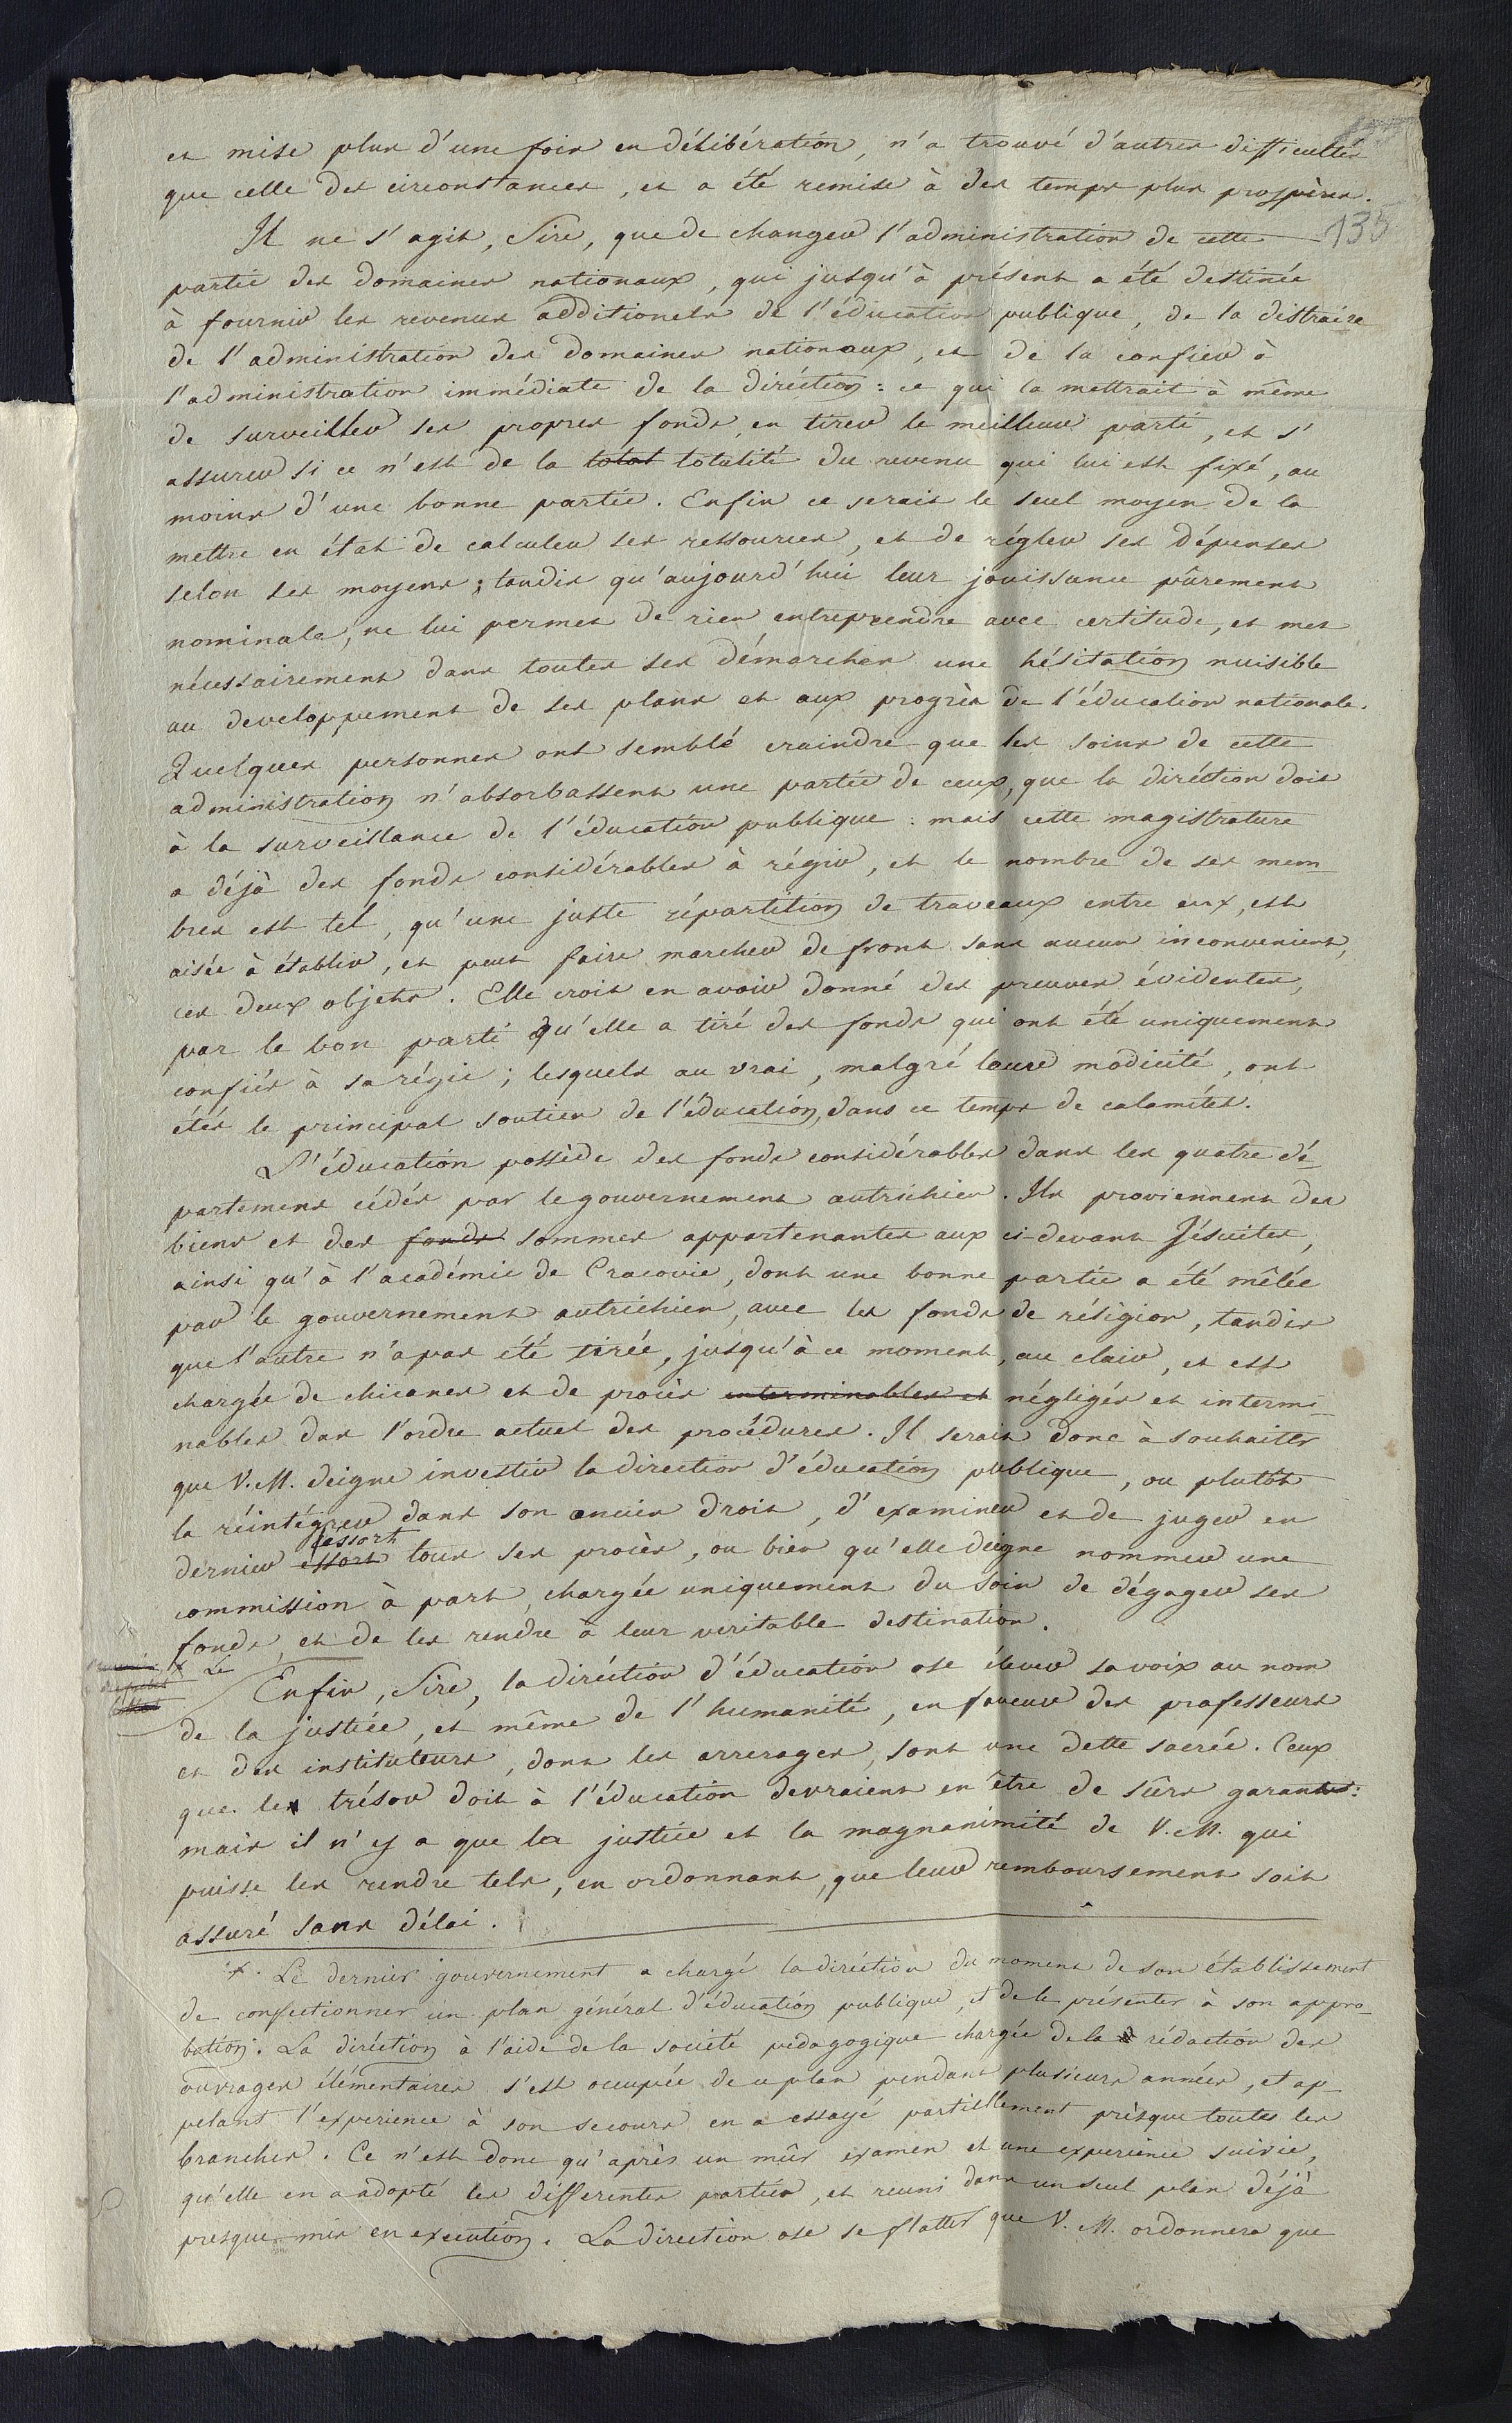 135
et mise plus d'une fois en délibération, n'a trouvé d'autres difficultés
que celle des circonstances, et a été remise à des temps plus prospères.
Il ne s'agit, Sire, que de changer l'administration de cette
partie des domaines nationaux, qui jusqu'à présent a été destinée
à fournir les revenus additionels de l'éducation publique, de la distraire
de l'administration des domaines nationaux, et de la confier à
l'administration immédiate de la diréction: ce qui la mettrait à même
de surveiller ses propres fonds, en tirer le meilleur parti, et s'
assurer si ce n'est de la total totalité du revenu qui lui est fixé, au
moins d'une bonne partie. Enfin ce serait le seul moyen de la
mettre en état de calculer ses ressources, et de régler ses dépenses
selon ses moyens; tandis qu'aujourd'hui leur jouissance pûrement
nominale, ne lui permet de rien entreprendre avec certitude, et met
nécessairement dans toutes ses démarches une hésitation nuisible
au developpement de ses plans et aux progrès de l'éducation nationale.
Quelques personnes ont semblé craindre que les soins de cette
administration n'absorbassent une partie de ceux, que la diréction doit
à la surveillance de l'éducation publique: mais cette magistrature
a déjà des fonds considérables à régir, et le nombre de ses mem-
bres est tel, qu'une juste répartition de travaux entre eux, est
aisée à établir, et peut faire marcher de front sans aucun inconvenient,
ces deux objets. Elle croit en avoir donné des preuves évidentes,
par le bon parti qu'elle a tiré des fonds qui ont été uniquement
confiés à sa régie; lesquels au vrai, malgré leur modicité, ont
étés le principal soutien de l'éducation, dans ce temps de calamités.
L'éducation possède des fonds considérables dans les quatre dé-
partemens cédés par le gouvernement autrichien. Ils proviennent des
biens et des fonds sommes appartenantes aux ci-devant Jésuites,
ainsi qu'à l'académie de Cracovie, dont une bonne partie a été mêlée
par le gouvernement autrichien, avec les fonds de réligion, tandis
que l'autre n'a pas été tirée, jusqu'à ce moment, au clair, et est
chargée de chicanes et de procès interminables et négligés et intermi-
nables das l'ordre actuel des procédures. Il serait donc à souhaiter
que V. M. deigne investir la direction d'éducation publique, ou plutôt
la réintégrer dans son ancien droit, d'examiner et de juger en
ressort
dernier essort tous ses procès, ou bien qu'elle deigne nommer une
commission à part, chargée uniquement du soin de dégager ses
fonds, et de les rendre à leur veritable destination.
x Le
Enfin, Sire, la diréction d'éducation ose élever sa voix au nom
de la justice, et même de l'humanité, en faveur des professeurs
et des instituteurs, dont les arrerages, sont une dette sacrée. Ceux
que le trésor doit à l'éducation devraient en être de sûrs garants:
mais il n'y a que la justice et la magnanimité de V. M. qui
puisse les rendre tels, en ordonnant, que leur remboursement soit
assuré sans délai.
x. Le dernier gouvernement a chargé la diréction du moment de son établissement
de confectionner un plan général d'éducation publique, et de le présenter à son appro-
bation. La diréction à l'aide de la société pedagogique chargée de la rédaction des
ouvrages élémentaires s'est occupée de ce plan pendant plusieurs années, et ap-
pelant l'experience à son secours en a essayé partiellement prèsque toutes les
branches. Ce n'est donc qu'après un mûr examen et une experience suivie,
qu'elle en a adopté les differentes parties, et reuni dans un seul plan déjà
presque mis en execution. La direction ose se flatter que V. M. ordonnera que